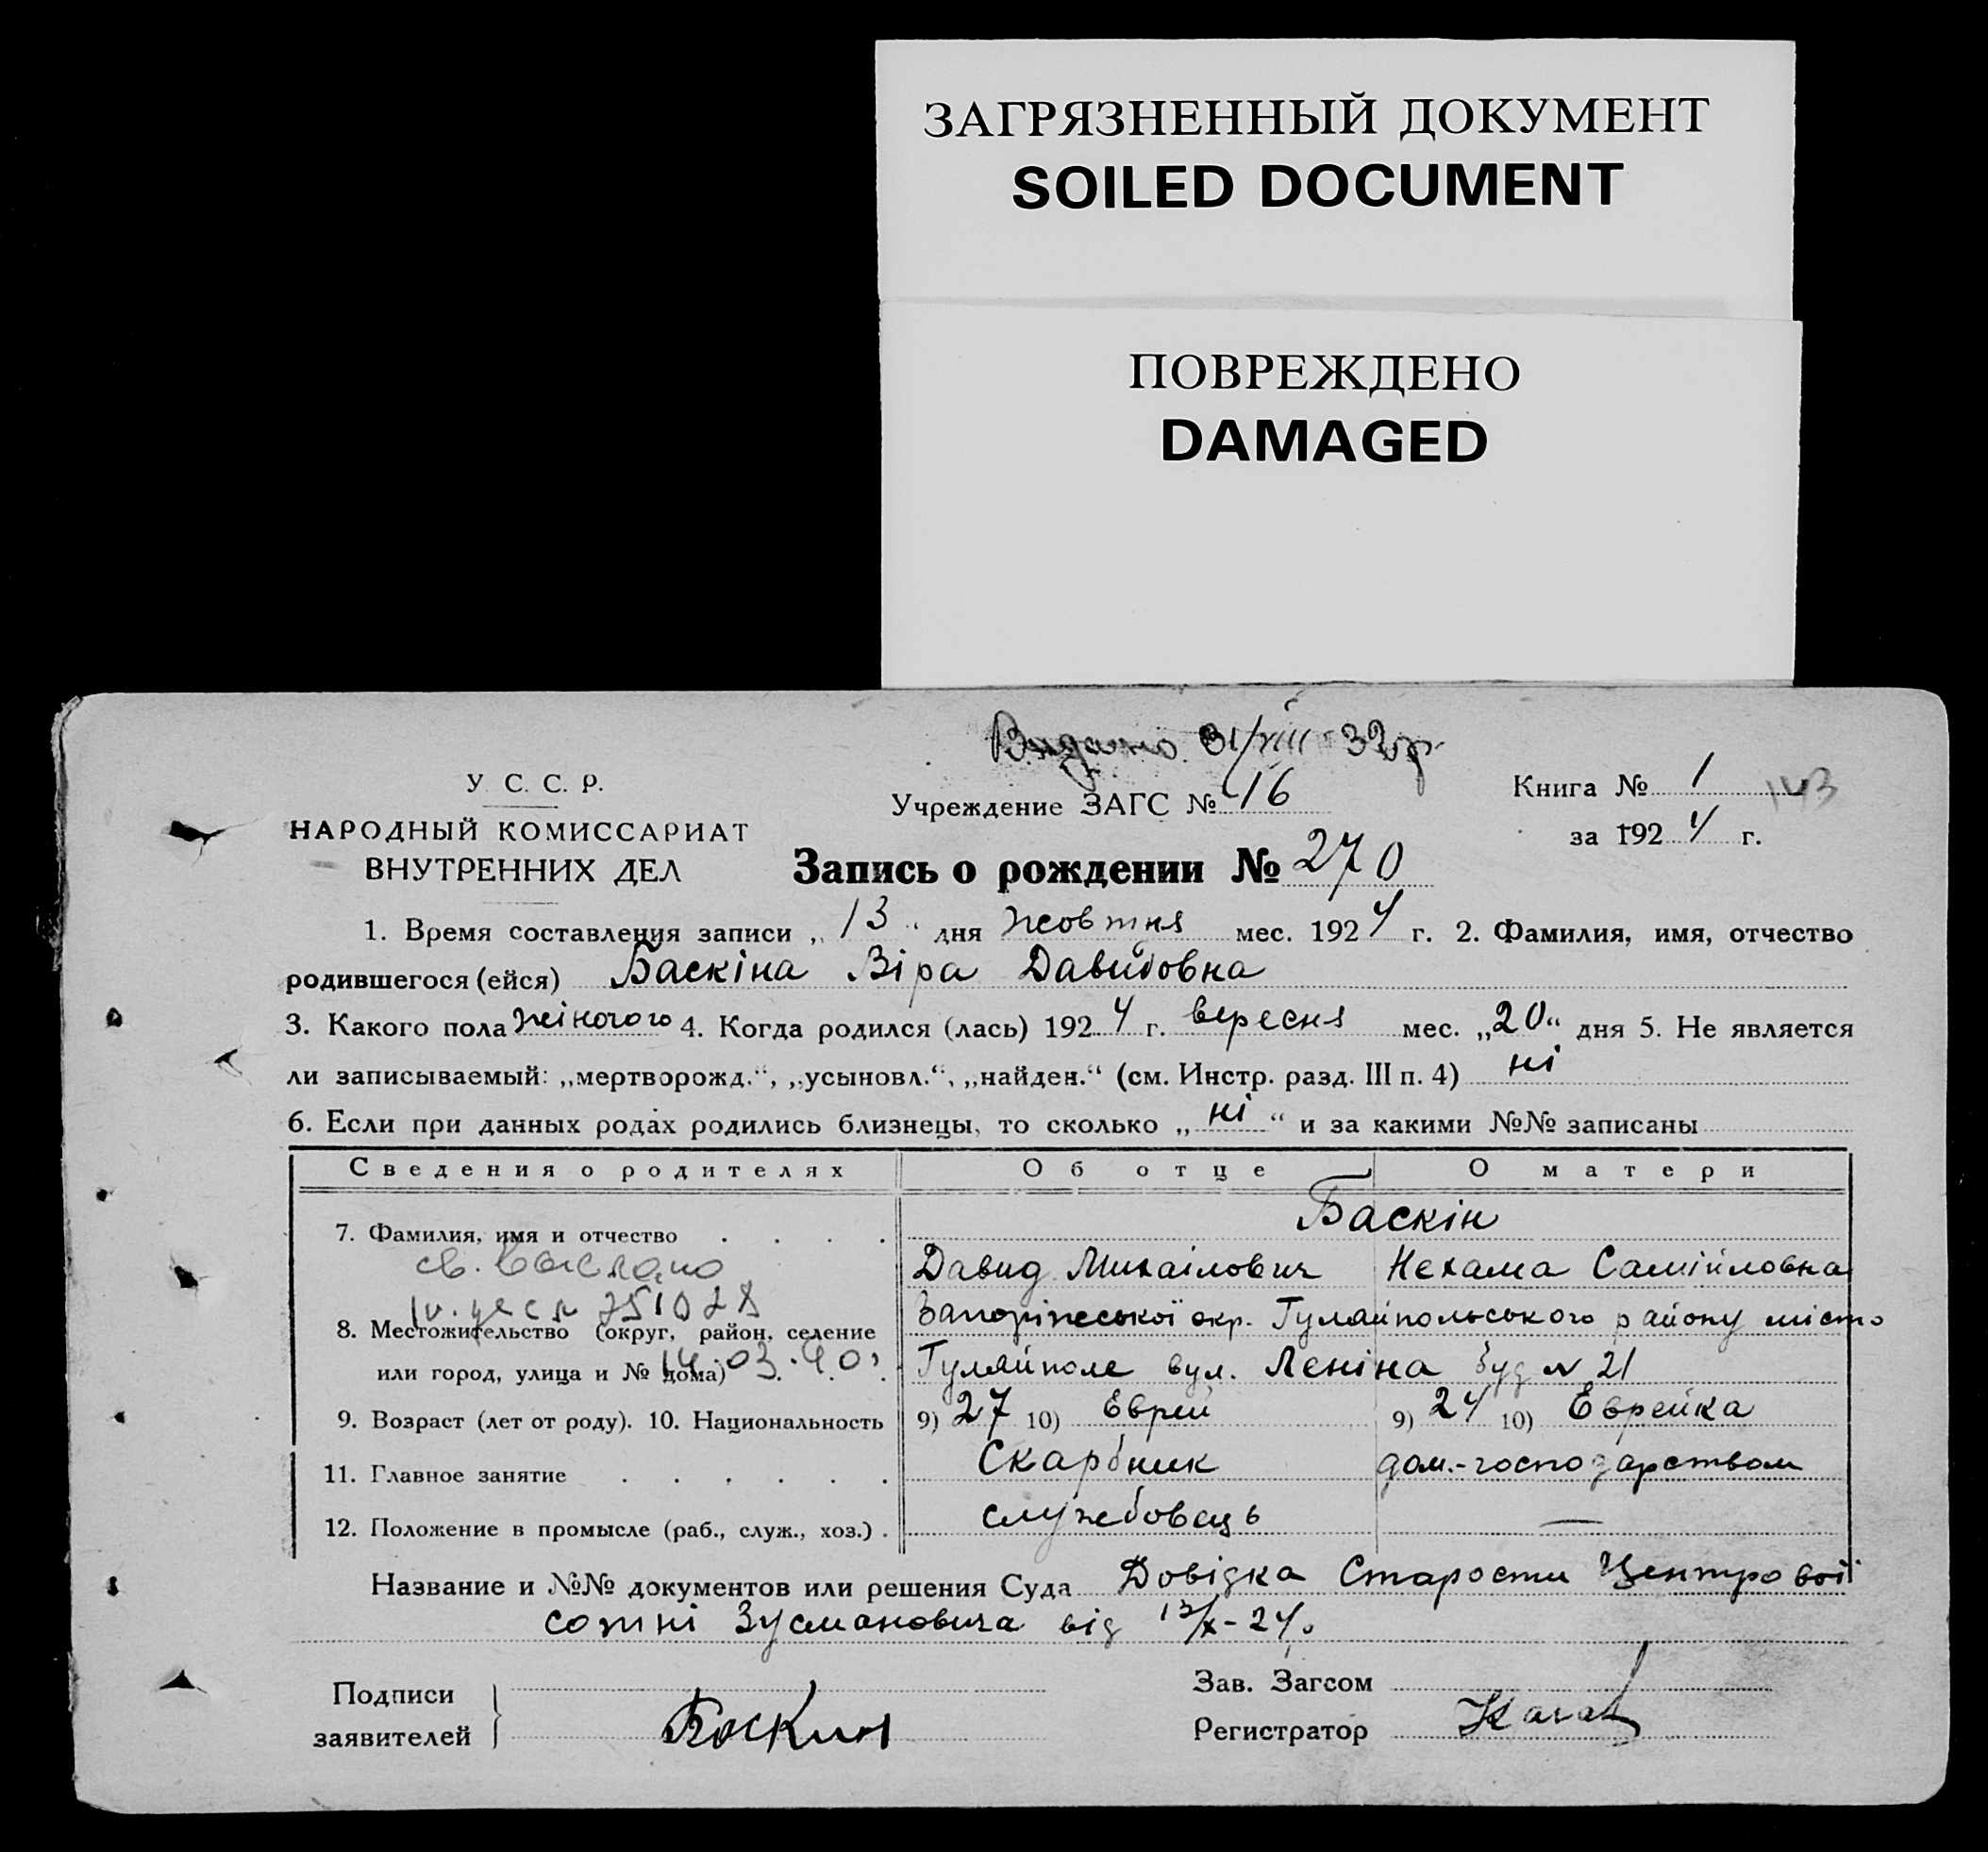 ЗАГРЯЗНЕННЫЙ ДОКУМЕНТ
SOILED DOCUMENT
ПОВРЕЖДЕНО
DAMAGED
Видано 31/VIII 32р
У. С. С. Р.
НАРОДНЫЙ КОМИССАРИАТ
ВНУТРЕННИХ ДЕЛ
Учреждение ЗАГС № 16
Запись о рождении № 270
Книга № 1 143
за 1924 г.
1. Время составления записи „13“ дня жовтня мес. 1924 г. 2. Фамилия, имя, отчество
родившегося (ейся) Баскіна Віра Давидовна
3. Какого пола жіночого 4. Когда родился (лась) 1924 г. вересня мес. „20“ дня 5. Не является
ли записываемый: „мертворожд.“, „усыновл.“, „найден.“ (см. Инстр. разд. III п. 4) ні
6. Если при данных родах родились близнецы, то сколько „ні“ и за какими №№ записаны
Сведения о родителях Об отце О матери
Баскін
7. Фамилия, имя и отчество
св. выслано Давид Михаілович Нехама Самійловна
751028
Запоріжської окр. Гуляйпольського району місто
8. Местожительство (округ, район, селение
или город, улица и № дома) Гуляйполе вул. Леніна буд № 21
14.03.40
9. Возраст (лет от роду). 10. Национальность 9) 27 10) Еврей 9) 24 10) Еврейка
11. Главное занятие Скарбник дом.-господарством
12. Положение в промысле (раб., служ., хоз.) службовець —
Название и №№ документов или решения Суда Довідка Старости Центрової
сотні Зусмановича від 12/X-24.
Подписи
заявителей } Баскин
Зав. Загсом
Регистратор